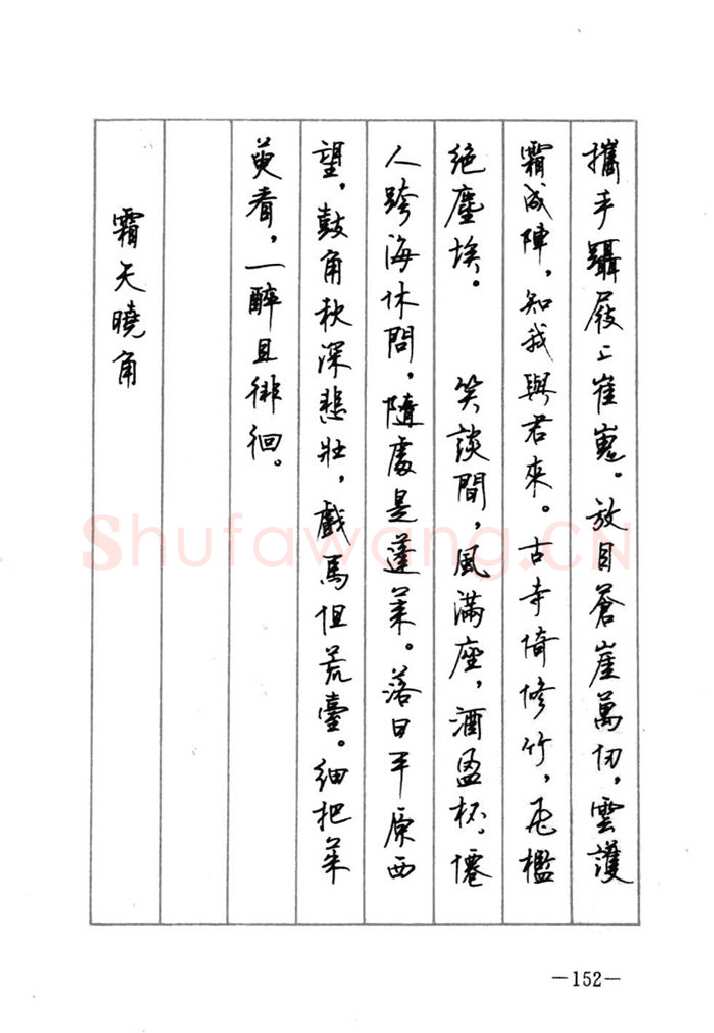 攜手躡屐上崔嵬。放目蒼崖萬仞，雲護
霜成陣，知我與君來。古寺倚修竹，飛檻
絕塵埃。 笑談間，風滿座，酒盈杯。僊
人跨海休問，隨處是蓬萊。落日平原西
望，鼓角秋深悲壯，戲馬但荒臺。細把茱
萸看，一醉且徘徊。
霜天曉角
Shufawang.CN
—152—